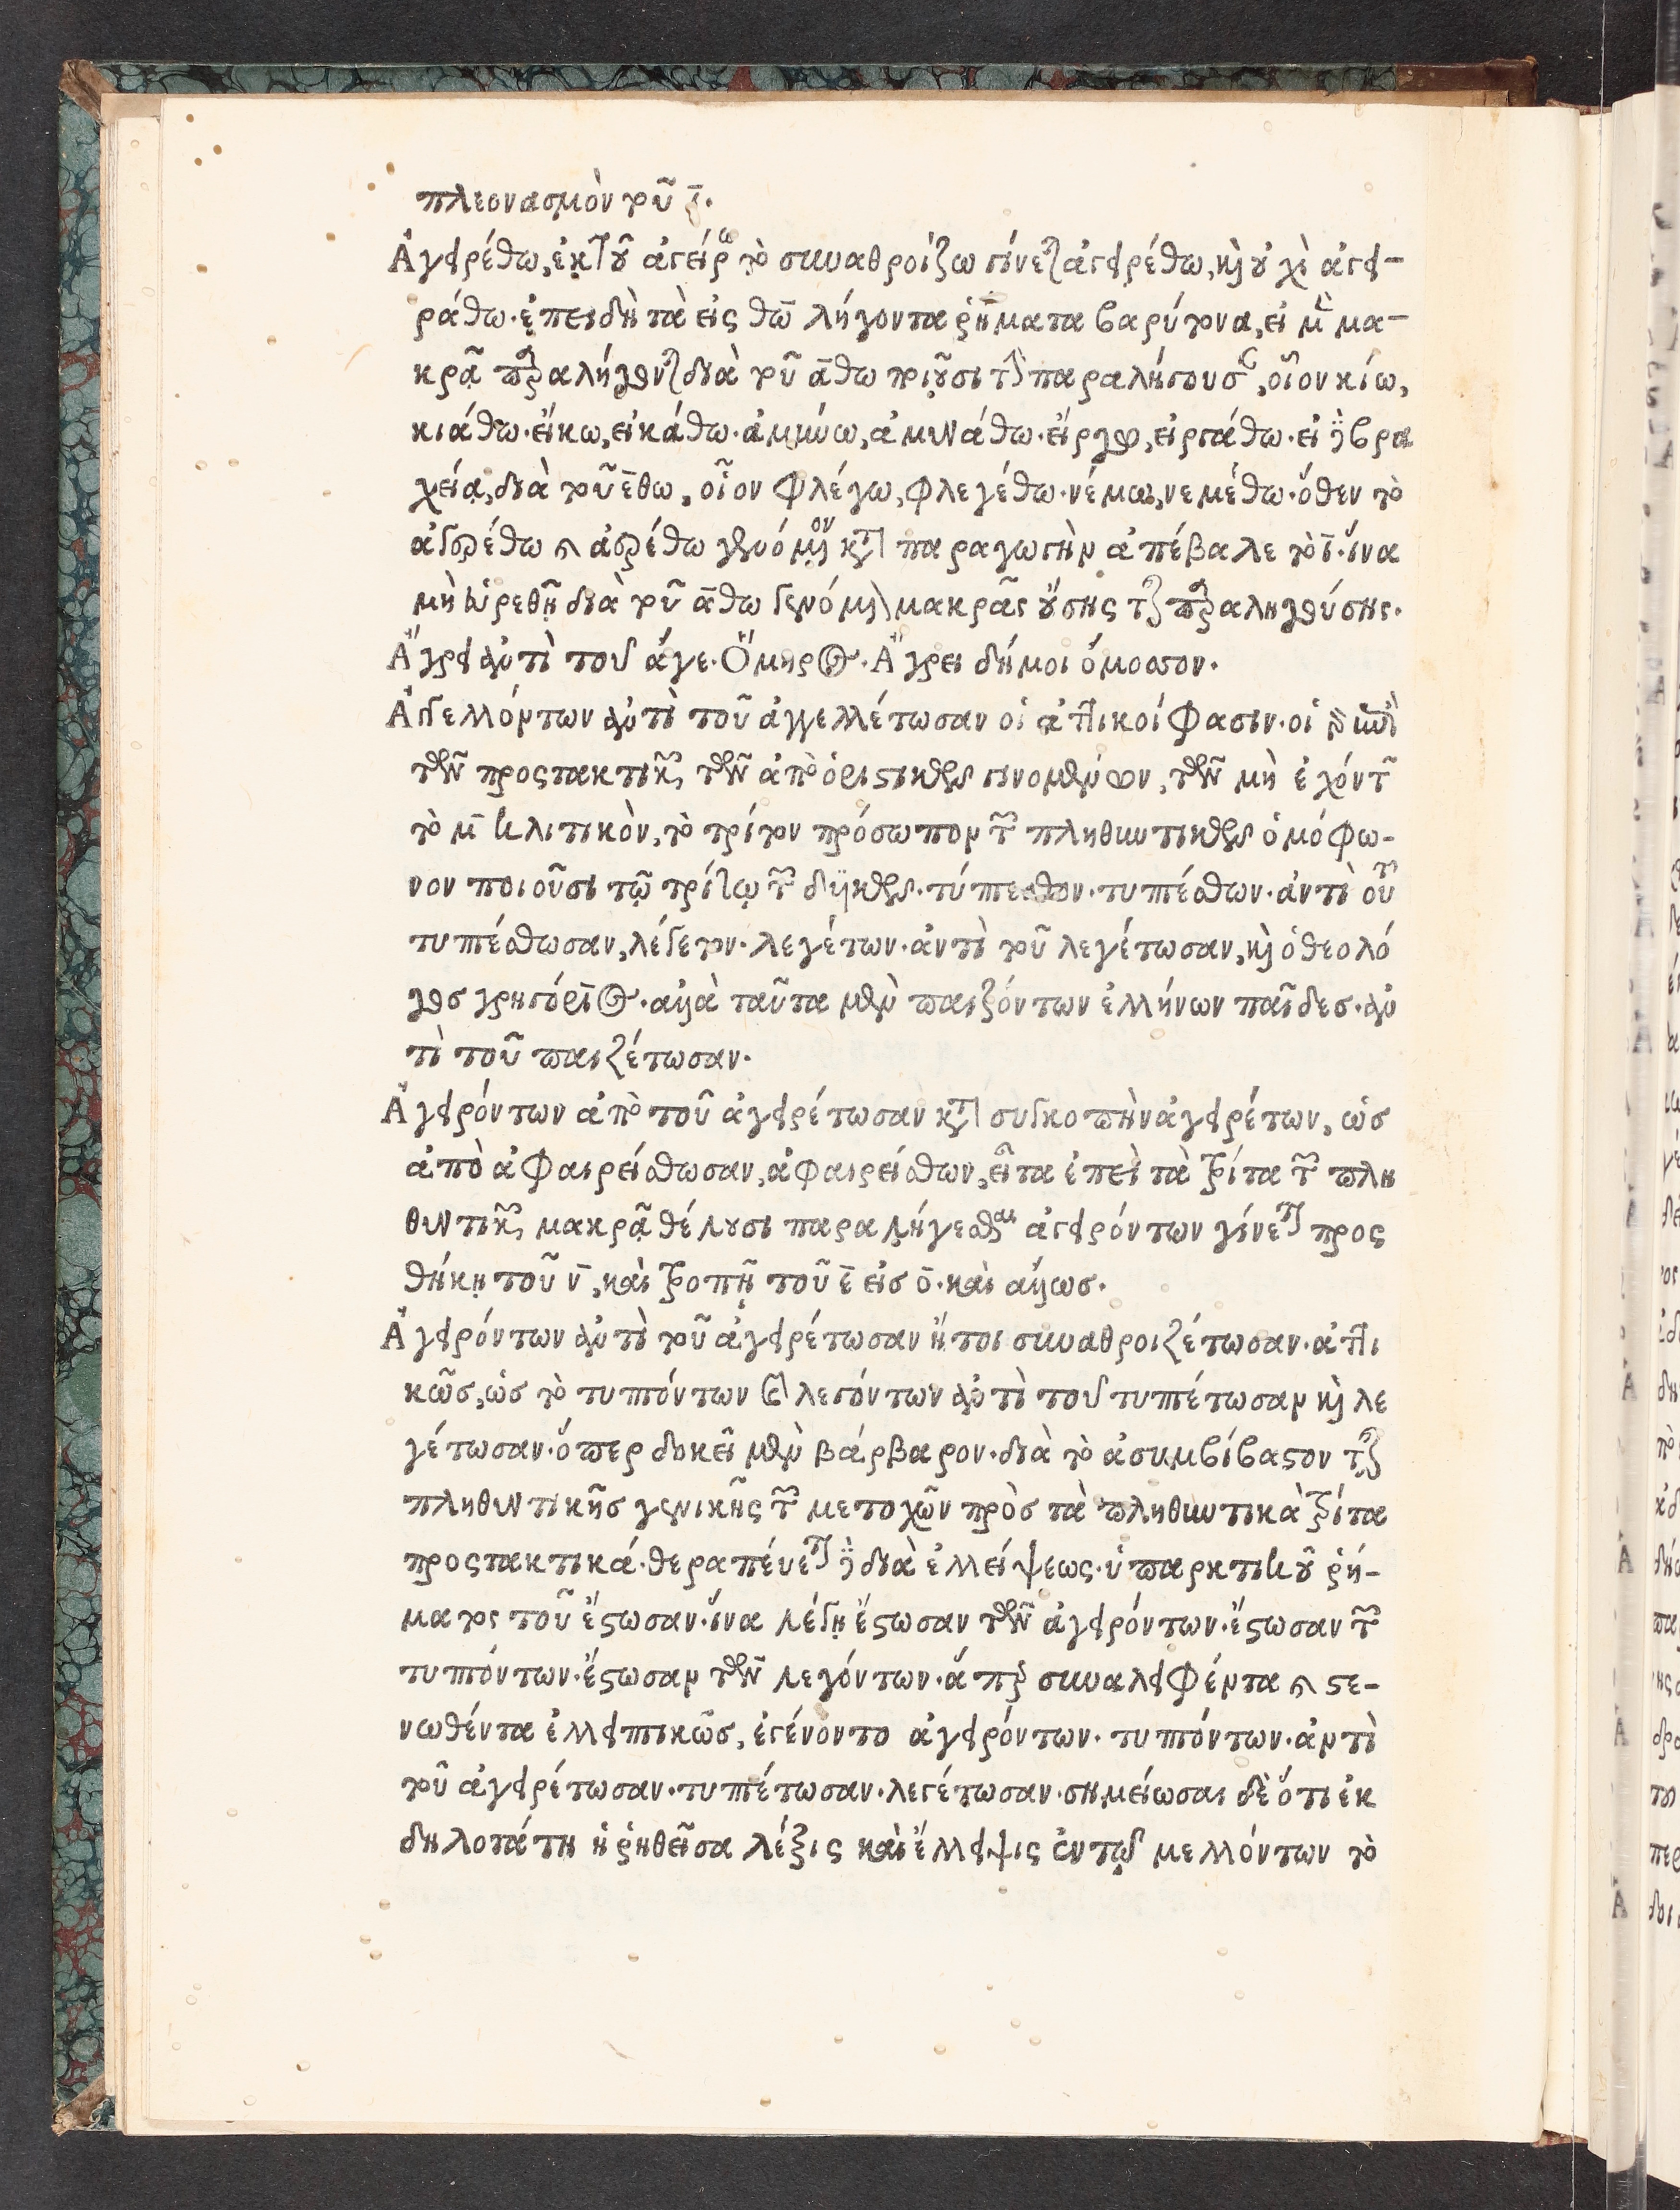 πλεονασμὸν τοῦ ῑ.
Ἀγερέθω, ἐκ τοῦ ἀγείρω τὸ συναθροίζω γίνεται ἀγερέθω, καὶ οὐχὶ ἀγε-
ράθω. ἐπειδὴ τὰ εἰς θω̄ λήγοντα ῥήματα βαρύτονα, εἰ μὲν μα-
κρᾷ παραλήγονται διὰ τοῦ ᾱθω ποιοῦσι τὴν παραλήγουσαν, οἷον κίω,
κιάθω. εἴκω, εἰκάθω. ἀμύνω, ἀμυνάθω. εἴργω, εἰργάθω. εἰ δὲ βρα
χείᾳ, διὰ τοῦ ε̄θω, οἷον φλέγω, φλεγέθω. νέμω, νεμέθω. ὅθεν τὸ
ἀγερέθω καὶ ἀερέθω γενόμενον κατὰ παραγωγὴν ἀπέβαλε τὸ ῑ. ἵνα
μὴ εὑρεθῇ διὰ τοῦ ᾱθω γενόμενον μακρᾶς οὔσης τῆς παραληγούσης.
Ἄγρει ἀντὶ τοῦ ἄγε. Ὅμηρος. Ἄγρει δή μοι ὄμοσσον.
Ἀγγελλόντων ἀντὶ τοῦ ἀγγελλέτωσαν οἱ ἀττικοί φασιν. οἱ γὰρ ἀττικοὶ
τῶν προστακτικῶν τῶν ἀπὸ ὁριστικῶν γινομένων, τῶν μὴ ἐχόντων
τὸ μ̄ κλιτικὸν, τὸ τρίτον πρόσωπον τῶν πληθυντικῶν ὁμόφω-
νον ποιοῦσι τῷ τρίτῳ τῶν δυϊκῶν. τύπτεσθον. τυπτέσθων. ἀντὶ τοῦ
τυπτέσθωσαν, λέγετον. λεγέτων. ἀντὶ τοῦ λεγέτωσαν, καὶ ὁ θεολό
γος γρηγόριος. ἀλλὰ ταῦτα μὲν παιζόντων ἑλλήνων παῖδες. ἀν
τὶ τοῦ παιζέτωσαν.
Ἀγερόντων ἀπὸ τοῦ ἀγερέτωσαν κατὰ συγκοπὴν ἀγερέτων, ὡς
ἀπὸ ἀφαιρείσθωσαν, ἀφαιρείσθων, εἶτα ἐπεὶ τὰ τρίτα τῶν πλη
θυντικῶν μακρᾷ θέλουσι παραλήγεσθαι ἀγερόντων γίνεται προς
θήκῃ τοῦ ν̄, καὶ τροπῇ τοῦ ε̄ εἰς ο̄. καὶ ἄλλως.
Ἀγερόντων ἀντὶ τοῦ ἀγερέτωσαν ἤτοι συναθροιζέτωσαν. ἀττι
κῶς, ὡς τὸ τυπτόντων καὶ λεγόντων ἀντὶ τοῦ τυπτέτωσαν καὶ λε
γέτωσαν. ὅπερ δοκεῖ μὲν βάρβαρον. διὰ τὸ ἀσυμβίβαστον τῆς
πληθυντικῆς γενικῆς τῶν μετοχῶν πρὸς τὰ πληθυντικὰ τρίτα
προστακτικά. θεραπεύεται δὲ διὰ ἐλλείψεως. ὑπαρκτικοῦ ῥή-
ματος τοῦ ἔστωσαν. ἵνα λέγῃ ἔστωσαν τῶν ἀγερόντων. ἔστωσαν τῶν
τυπτόντων. ἔστωσαν τῶν λεγόντων. ἅπερ συναλειφέντα καὶ στε-
νωθέντα ἐλλειπτικῶς, ἐγένοντο ἀγερόντων. τυπτόντων. ἀντὶ
τοῦ ἀγερέτωσαν. τυπτέτωσαν. λεγέτωσαν. σημείωσαι δὲ ὅτι ἐκ
δηλοτάτη ἡ ῥηθεῖσα λέξις καὶ ἔλλειψις ἐν τῷ μελλόντων τὸ